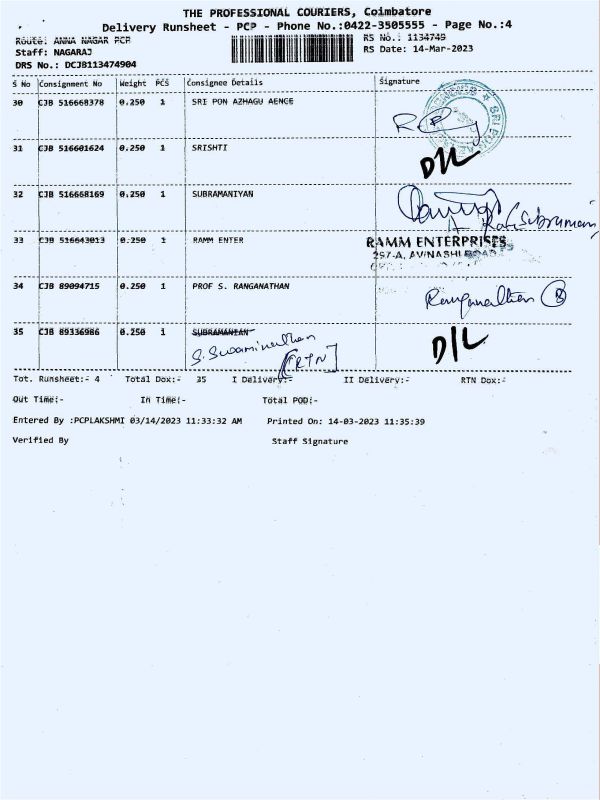 THE PROFESSIONAL COURIERS, Coimbatore
Delivery Runsheet - PCP - Phone No.:0422-3505555 - Page No.:4
Route: ANNA NAGAR PCP
RS No.: 1134749
Staff: NAGARAJ
RS Date: 14-Mar-2023
DRS No.: DCJB113474904
S No Consignment No Weight PCS Consignee Details Signature
30 CJB 516668378 0.250 1 SRI PON AZHAGU AENCE
31 CJB 516601624 0.250 1 SRISHTI D/L
32 CJB 516668169 0.250 1 SUBRAMANIYAN
33 CJB 516643013 0.250 1 RAMM ENTER RAMM ENTERPRISES
297-A, AVINASHI ROAD
34 CJB 89094715 0.250 1 PROF S. RANGANATHAN Ranganathan
35 CJB 89336986 0.250 1 SUBRAMANIAN D/L
S. Swaminathan
[RTN]
Tot. Runsheet:- 4 Total Dox:- 35 I Delivery:- II Delivery:- RTN Dox:-
Out Time:- In Time:- Total POD:-
Entered By :PCPLAKSHMI 03/14/2023 11:33:32 AM Printed On: 14-03-2023 11:35:39
Verified By Staff Signature